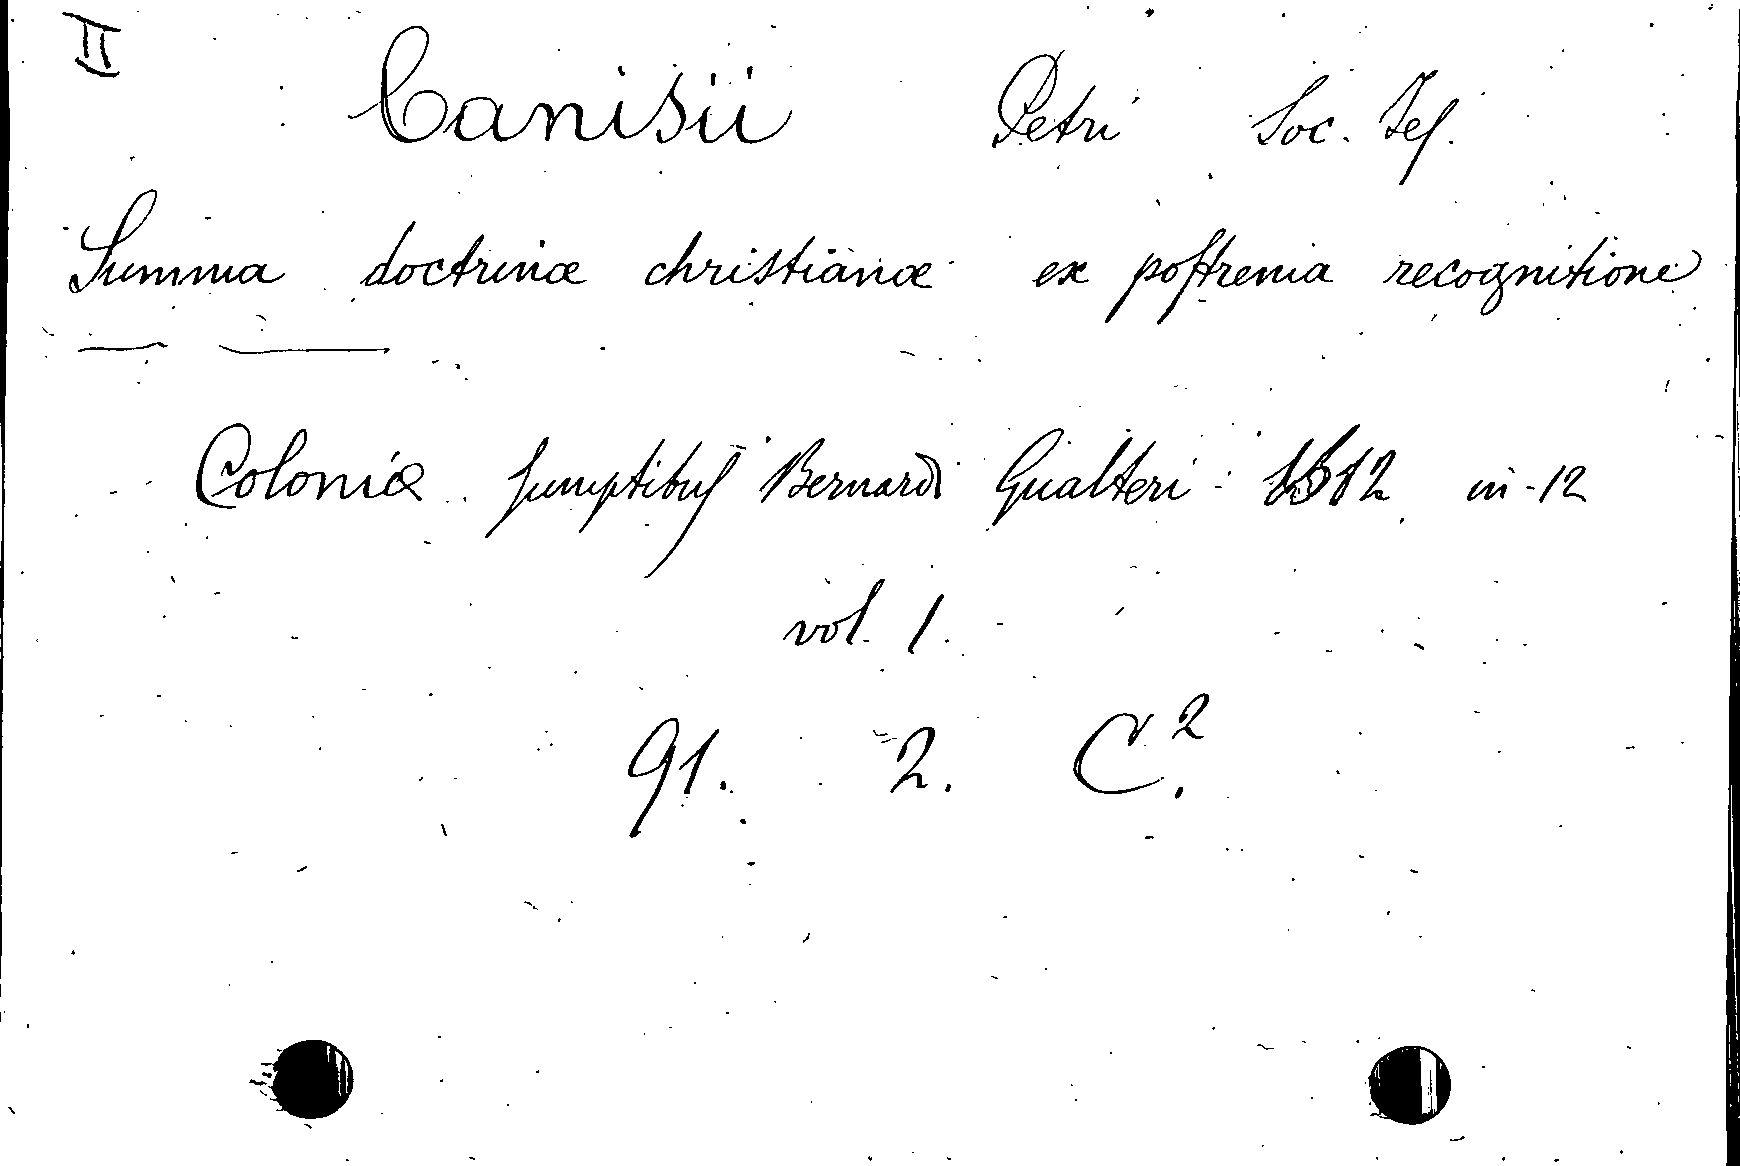 II
Canisii Petri Soc. Jes.
Summa doctrinæ christianæ ex postrema recognitione
Coloniæ sumptibus Bernardi Gualteri in-12
vol. 1.
91. 2. C².